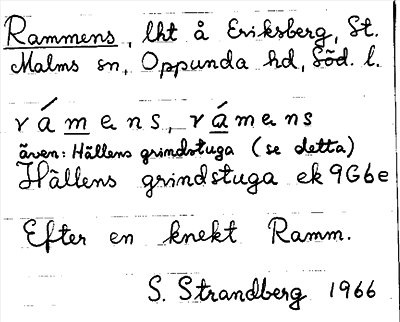 Rammens, lht å Eriksberg, St.
Malms sn, Oppunda hd, Söd. l.
rámens, rámens
även: Hällens grindstuga (se detta)
Hällens grindstuga ek 9G6e
Efter en knekt Ramm.
S. Strandberg 1966